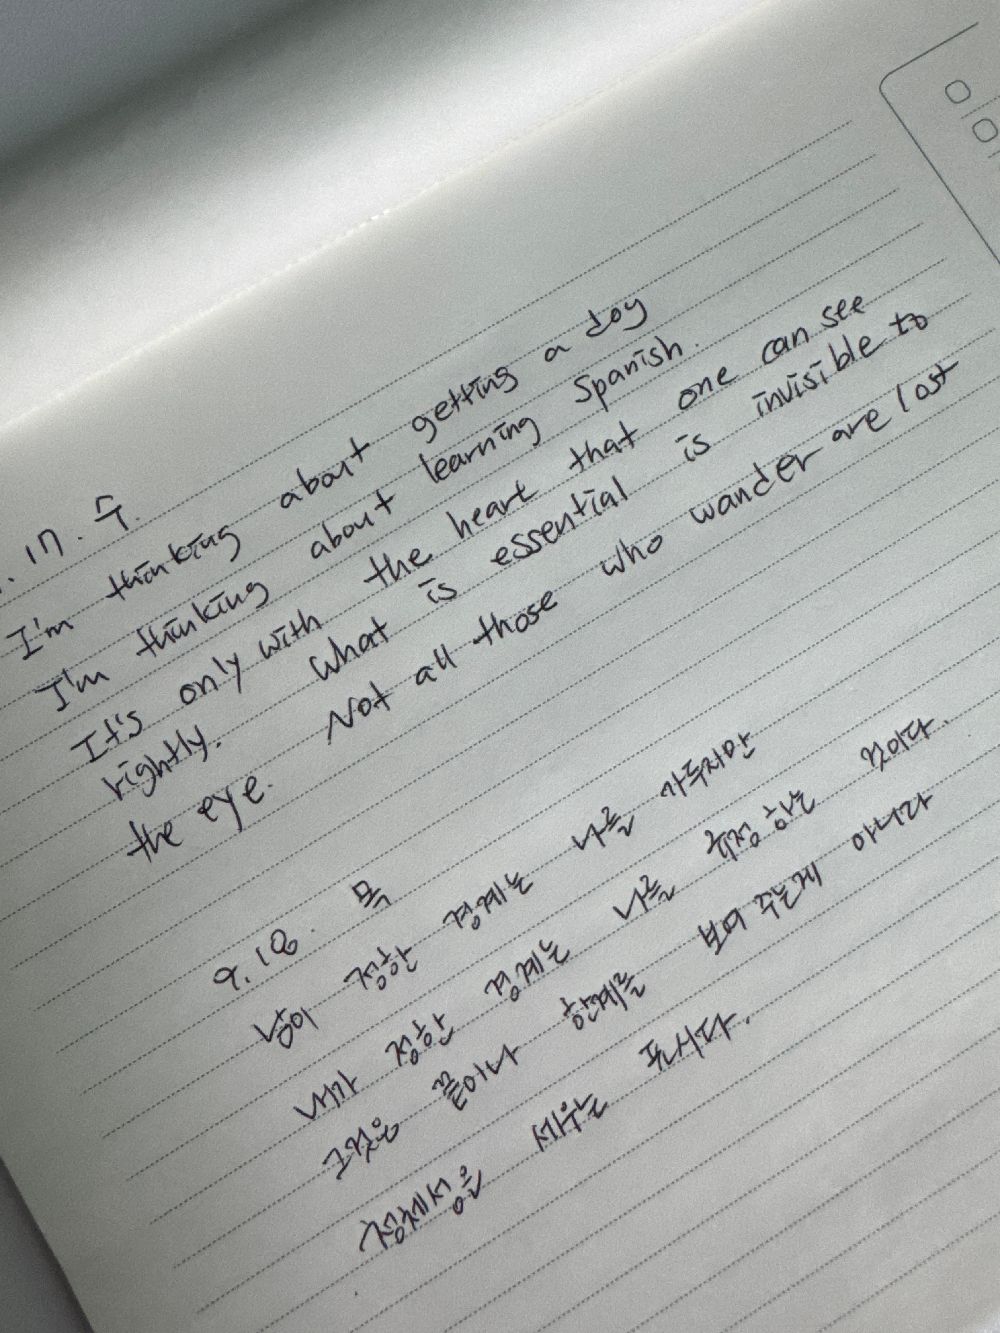 . 17. 수
I'm thinking about getting a dog
I'm thinking about learning Spanish.
It's only with the heart that one can see
rightly. What is essential is invisible to
the eye. Not all those who wander are lost
9. 18. 목
남이 정한 경계는 나를 가두지만
내가 정한 경계는 나를 규정하는 것이다.
그것은 끝이나 한계를 보여 주는게 아니라
정체성을 세우는 표시다.